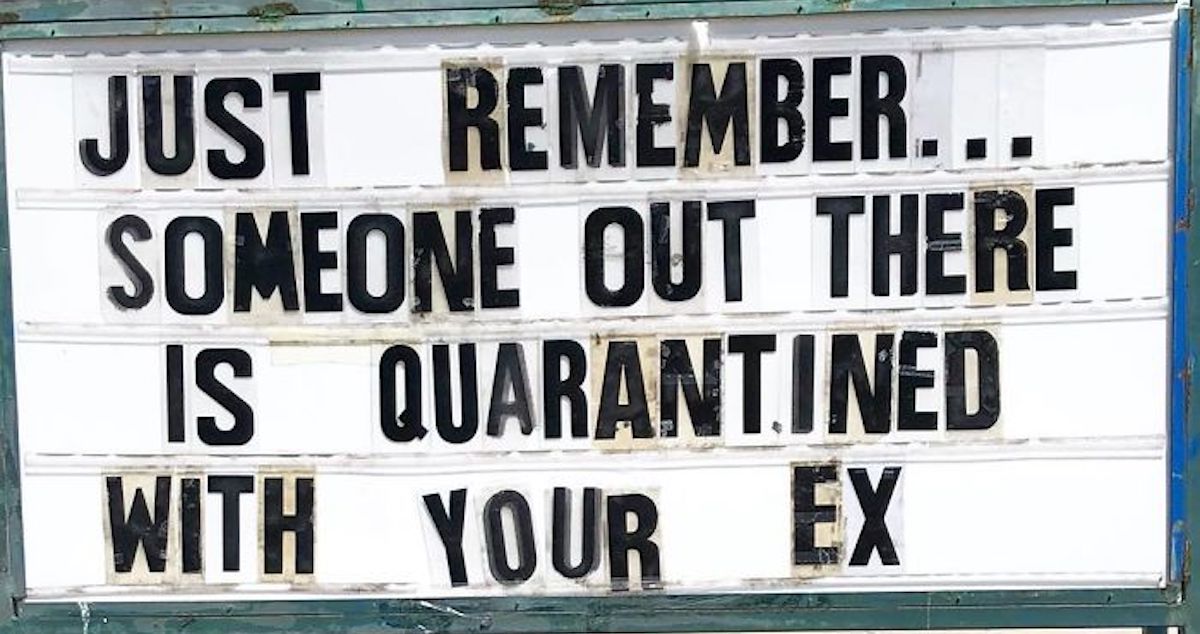 JUST REMEMBER...
SOMEONE OUT THERE
IS QUARANTINED
WITH YOUR EX